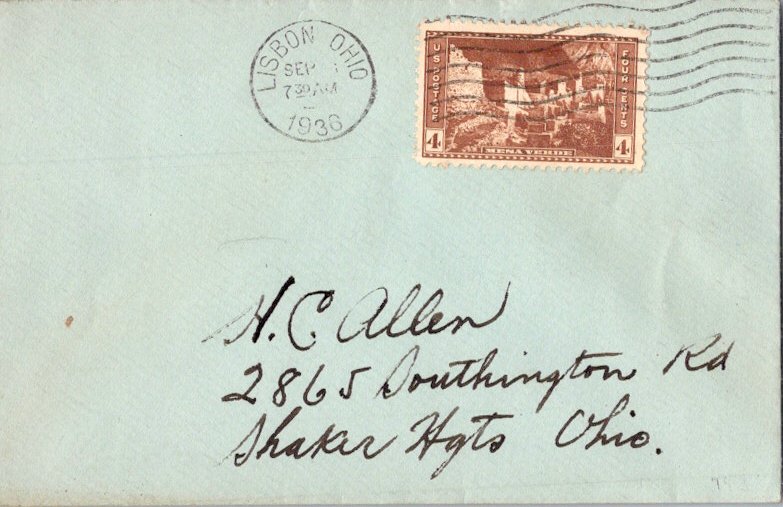 LISBON OHIO
SEP
7 30 AM
1936
U S POSTAGE
FOUR CENTS
4 4
MESA VERDE
H. C. Allen
2865 Southington Rd
Shaker Hgts Ohio.